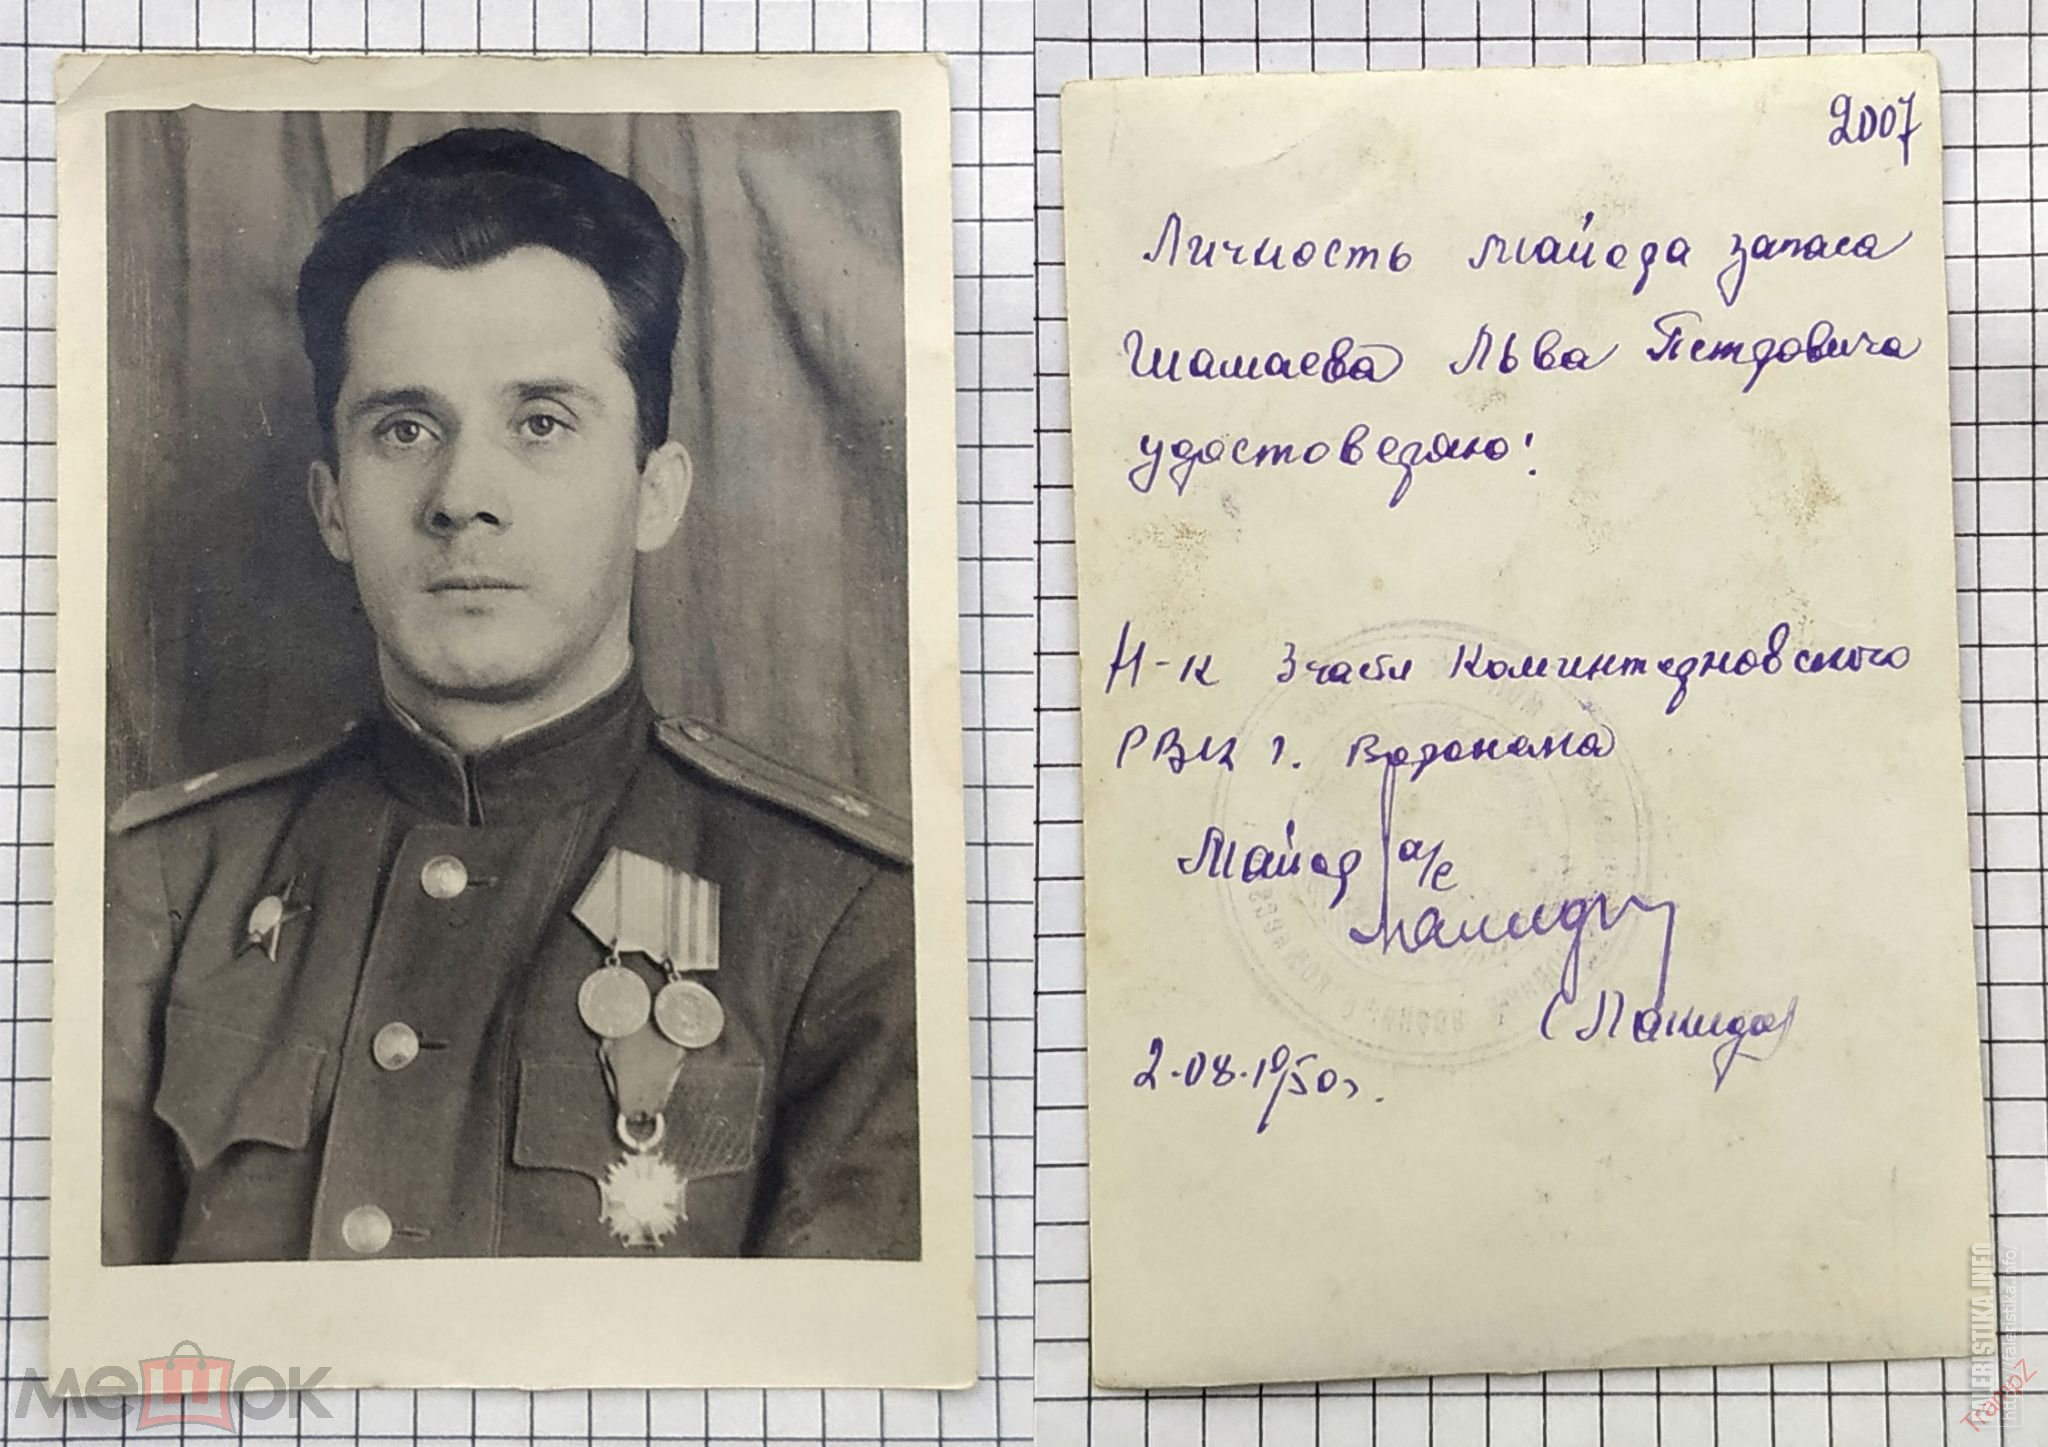 2007
Личность майора запаса
Шамаева Льва Петровича
удостоверяю!
Н-к 3 части Коминтерновского
РВК г. Воронежа
Майор а/с
2.08.1950г.
мешок
FALERISTIKA.INFO
http://faleristika.info/
TrampZ